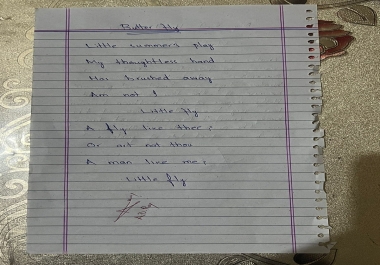 Butter fly
Little summer's play
My thoughtless hand
Has brushed away
Am not I
Little fly
A fly like thee?
Or art not thou
A man like me?
Little fly